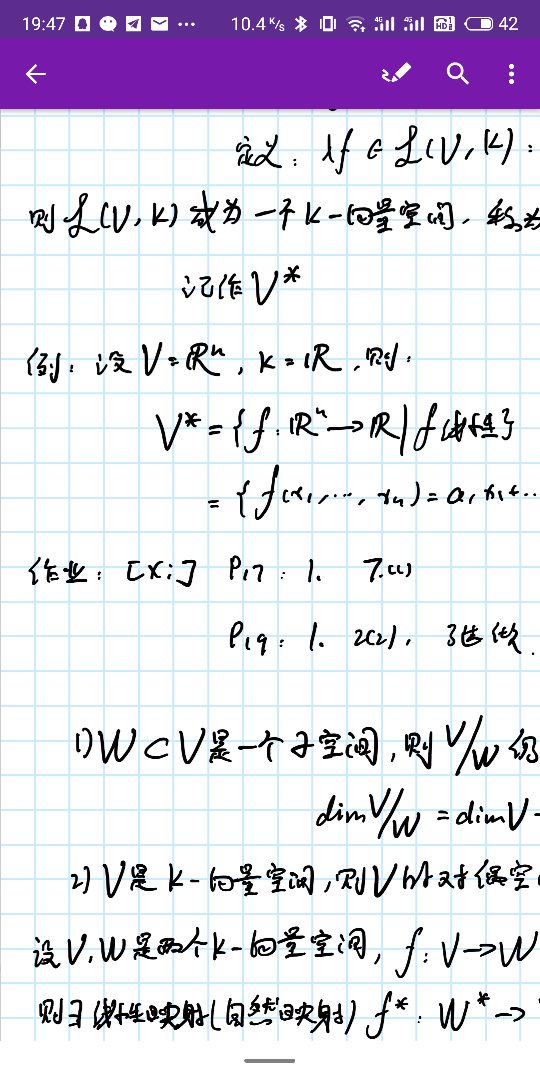 19:47 10.4 K/s 4G 4G HD 42
定义：λf ∈ ℒ(V, K)：
则 ℒ(V, K) 成为一个 K-向量空间，称为
记作 V*
例：设 V=ℝⁿ, K=ℝ，则：
V* = {f: ℝⁿ→ℝ | f线性}
= {f(x₁, …, xₙ) = a₁x₁+…
作业：[X:] P₁₇：1. 7.(1)
P₁₉：1. 2(2)，3选做.
1) W⊂V是一个子空间，则 V/W 仍
dim V/W = dim V -
2) V是 K-向量空间，则V的对偶空
设 V, W 是两个K-向量空间，f: V→W
则∃线性映射(自然映射) f*: W*→